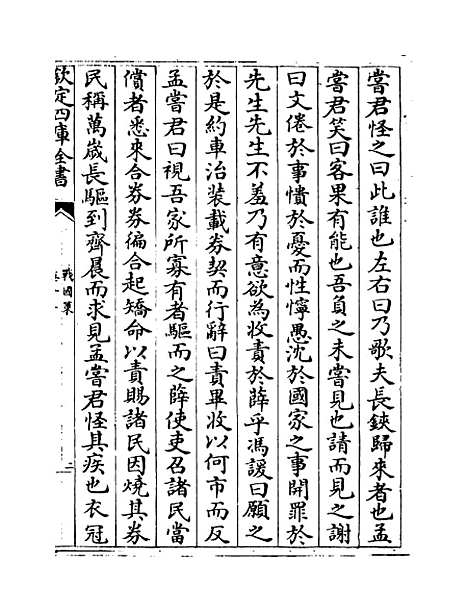 嘗君怪之曰此誰也左右曰乃歌夫長鋏歸來者也孟
嘗君笑曰客果有能也吾負之未嘗見也請而見之謝
曰文倦於事憒於憂而性懧愚沈於國家之事開罪於
先生先生不羞乃有意欲為收責於薛乎馮諼曰願之
於是約車治裝載券契而行辭曰責畢收以何市而反
孟嘗君曰視吾家所寡有者驅而之薛使吏召諸民當
償者悉來合券券徧合起矯命以責賜諸民因燒其券
民稱萬歲長驅到齊晨而求見孟嘗君怪其疾也衣冠
欽定四庫全書
戰國策
二